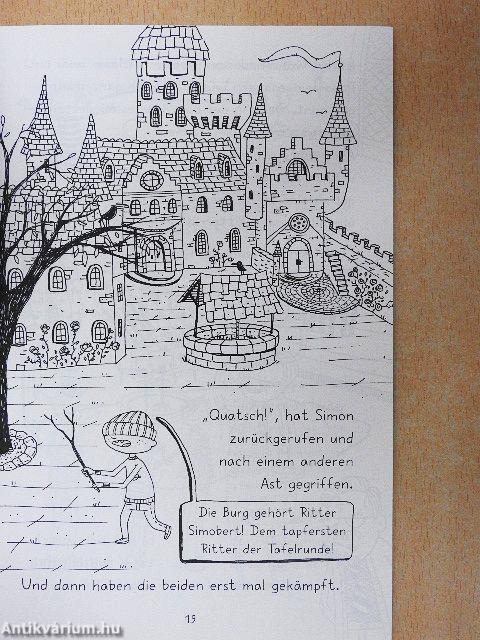 „Quatsch!“, hat Simon
zurückgerufen und
nach einem anderen
Ast gegriffen.
Die Burg gehört Ritter
Simobert! Dem tapfersten
Ritter der Tafelrunde!
Und dann haben die beiden erst mal gekämpft.
15
Antikvárium.hu